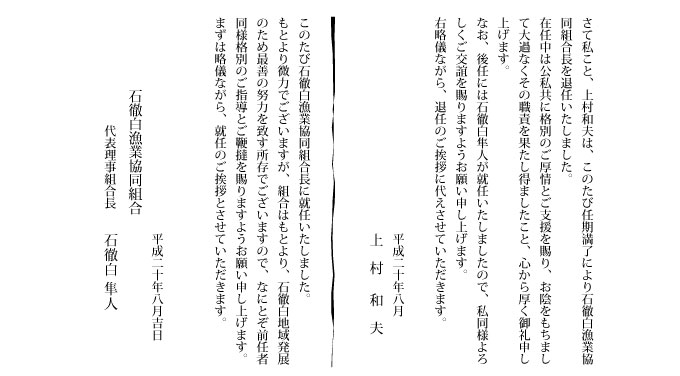 さて私こと、上村和夫は、このたび任期満了により石徹白漁業協
同組合長を退任いたしました。
在任中は公私共に格別のご厚情とご支援を賜り、お陰をもちまし
て大過なくその職責を果たし得ましたこと、心から厚く御礼申し
上げます。
なお、後任には石徹白隼人が就任いたしましたので、私同様よろ
しくご交誼を賜りますようお願い申し上げます。
右略儀ながら、退任のご挨拶に代えさせていただきます。
平成二十年八月
上村和夫
このたび石徹白漁業協同組合長に就任いたしました。
もとより微力でございますが、組合はもとより、石徹白地域発展
のため最善の努力を致す所存でございますので、なにとぞ前任者
同様格別のご指導とご鞭撻を賜りますようお願い申し上げます。
まずは略儀ながら、就任のご挨拶とさせていただきます。
平成二十年八月吉日
石徹白漁業協同組合
代表理事組合長 石徹白 隼人